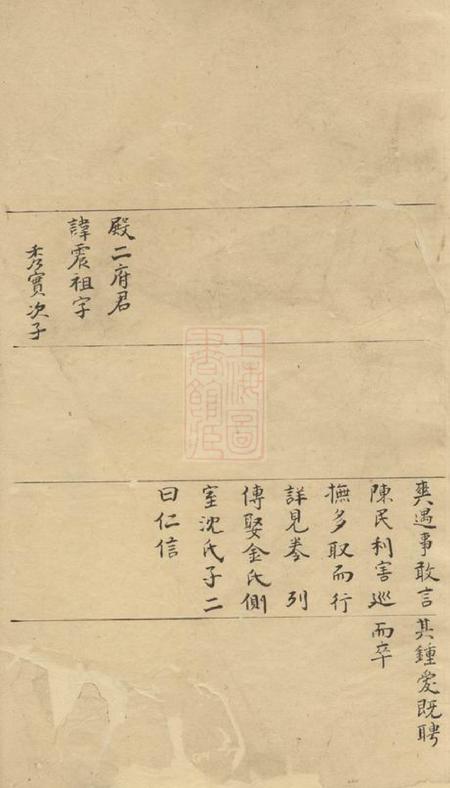 殿二府君
諱震祖字
秀實次子
上海圖
書館藏
爽遇事敢言
陳民利害巡
撫多取而行
詳見卷 列
傳娶金氏側
室沈氏子二
曰仁信
其鍾愛既聘
而卒